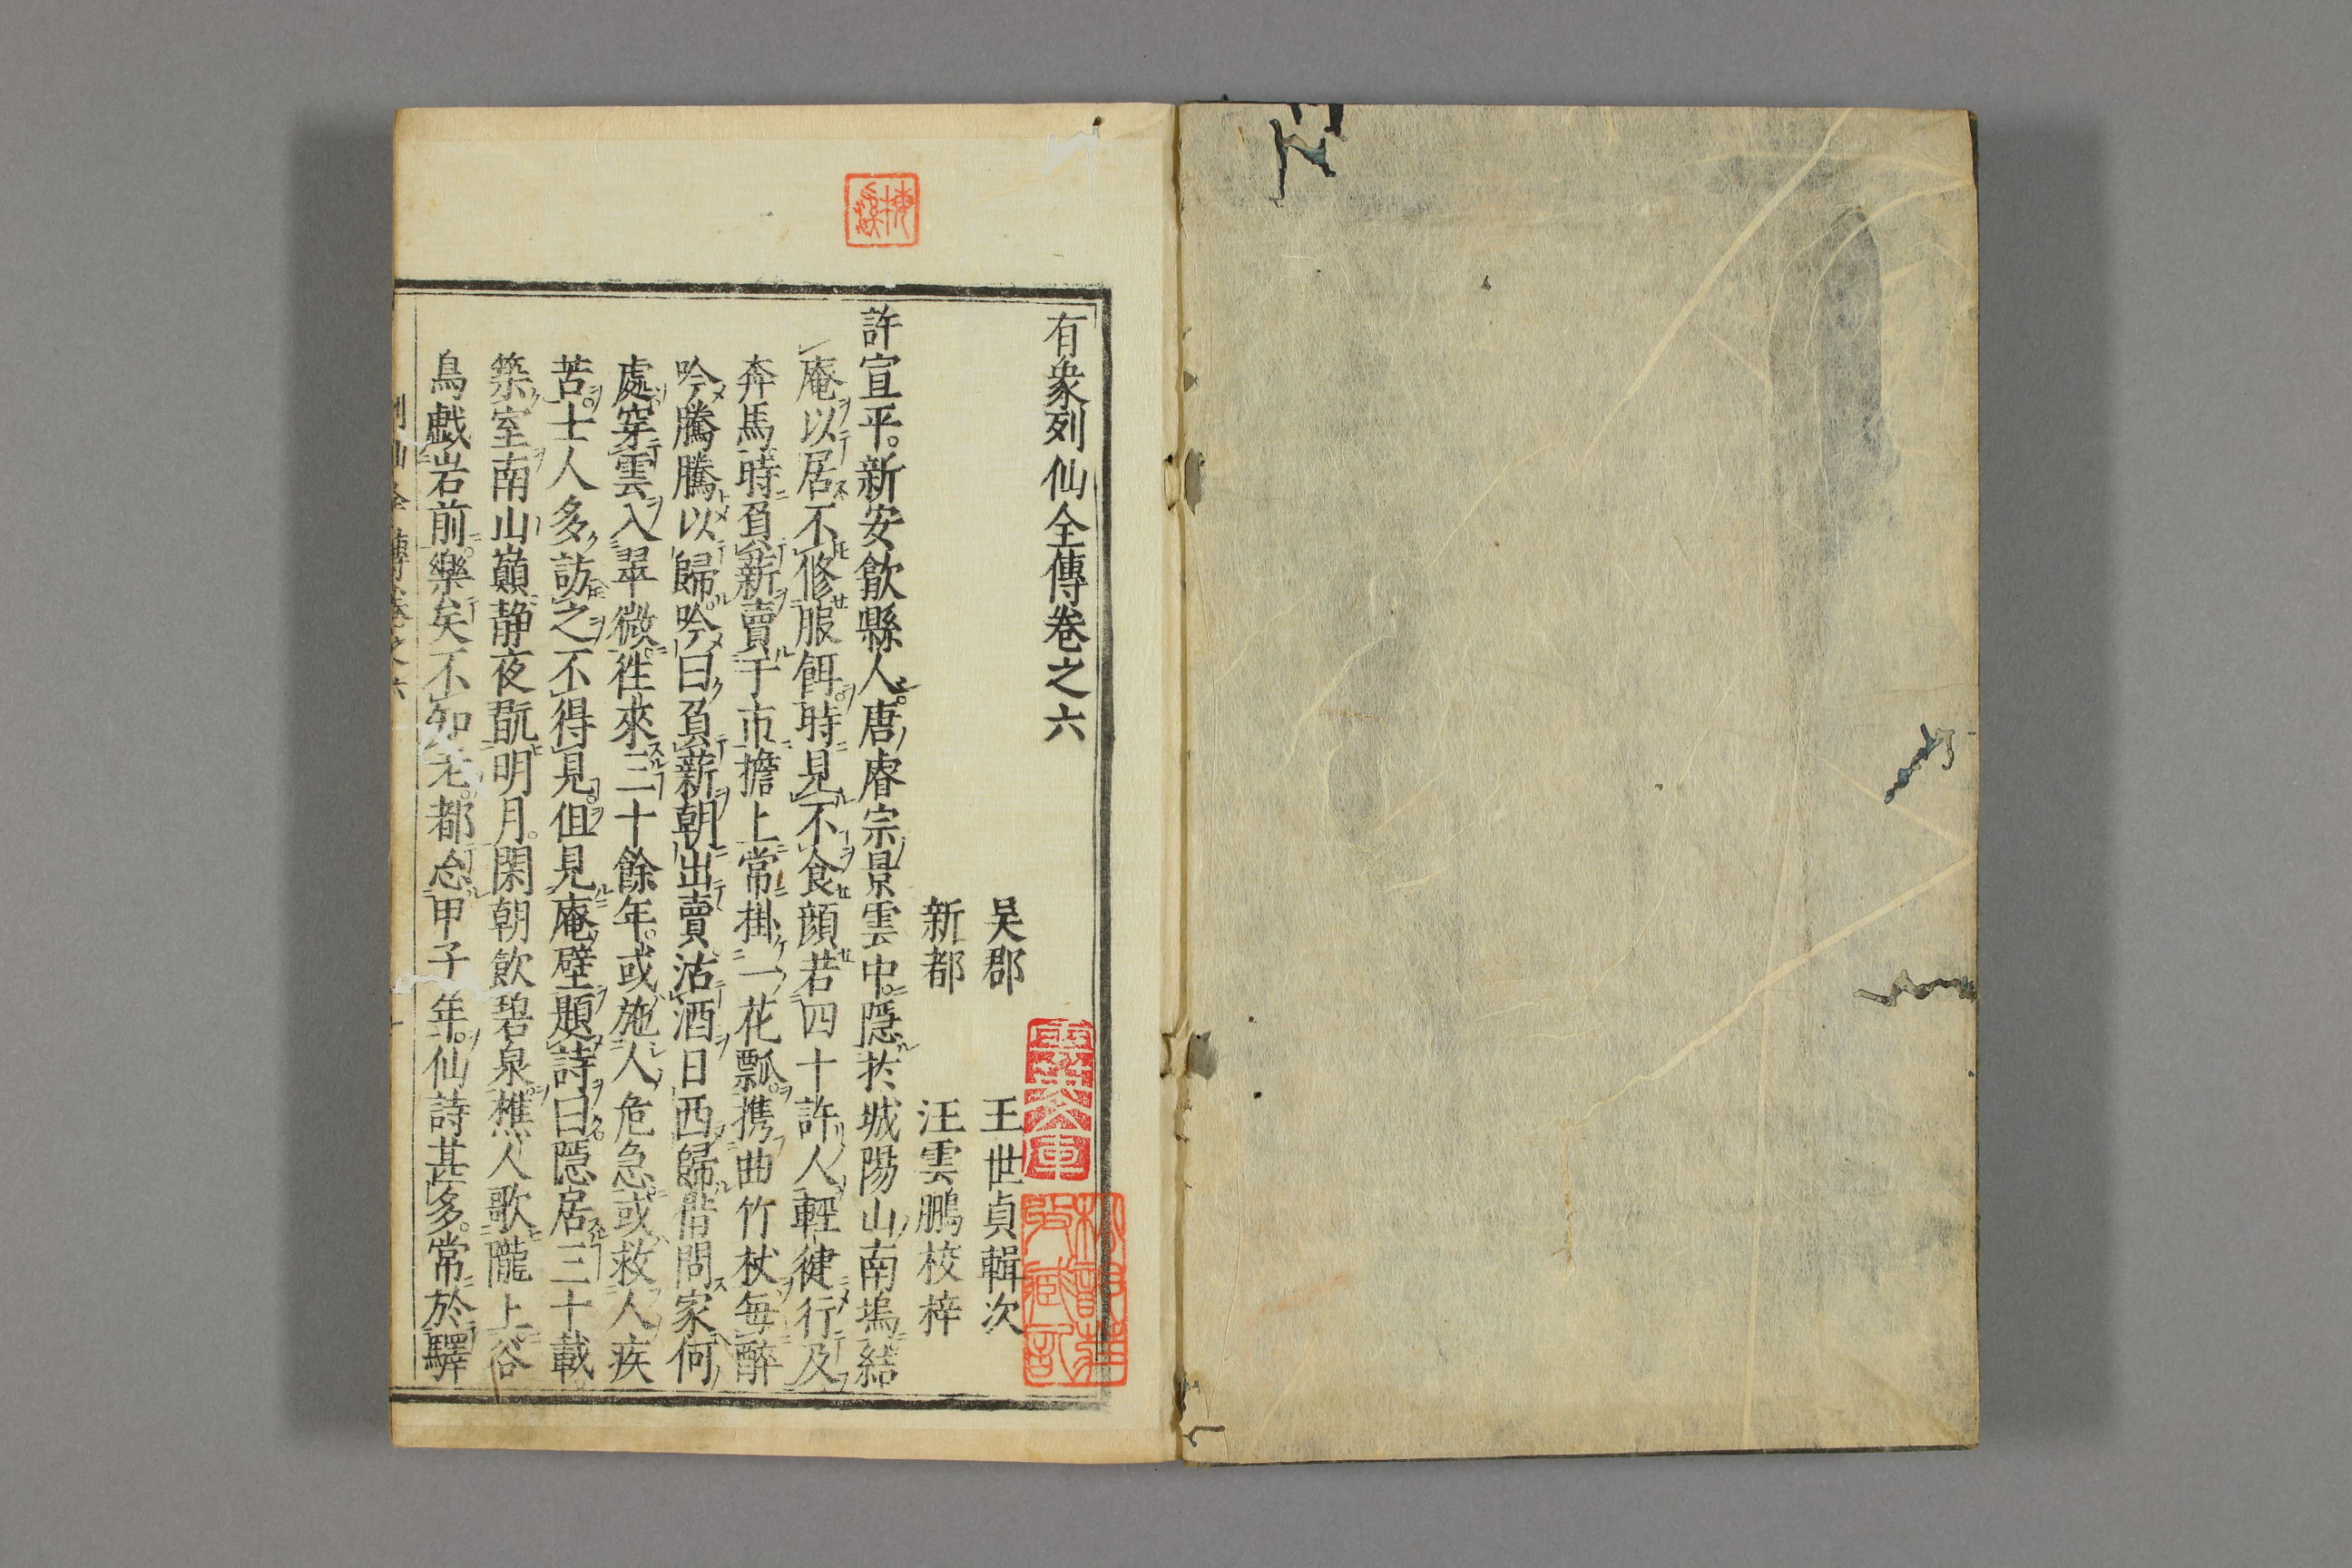 有衆列仙全傳卷之六
吳郡 王世貞輯次
新都 汪雲鵬校梓
許宣平。新安歙縣人。唐睿宗景雲中。隱於城陽山南塢結
庵以居不修服餌。時見不食顔若四十許人輕健行及
奔馬時負薪賣于市擔上常掛一花瓢。携曲竹杖每醉
吟騰騰以歸。吟曰負薪朝出賣。沽酒日西歸借問家何
處。穿雲入翠微。徃來三十餘年。或施人危急。或救人疾
苦。士人多訪之不得見。但見庵壁題詩曰。隱居三十載
築室南山巔静夜翫明月。閑朝飲碧泉。樵人歌隴上。谷
鳥戱岩前。樂矣不知老。都忩甲子年。仙詩甚多。常於驛
梅溪